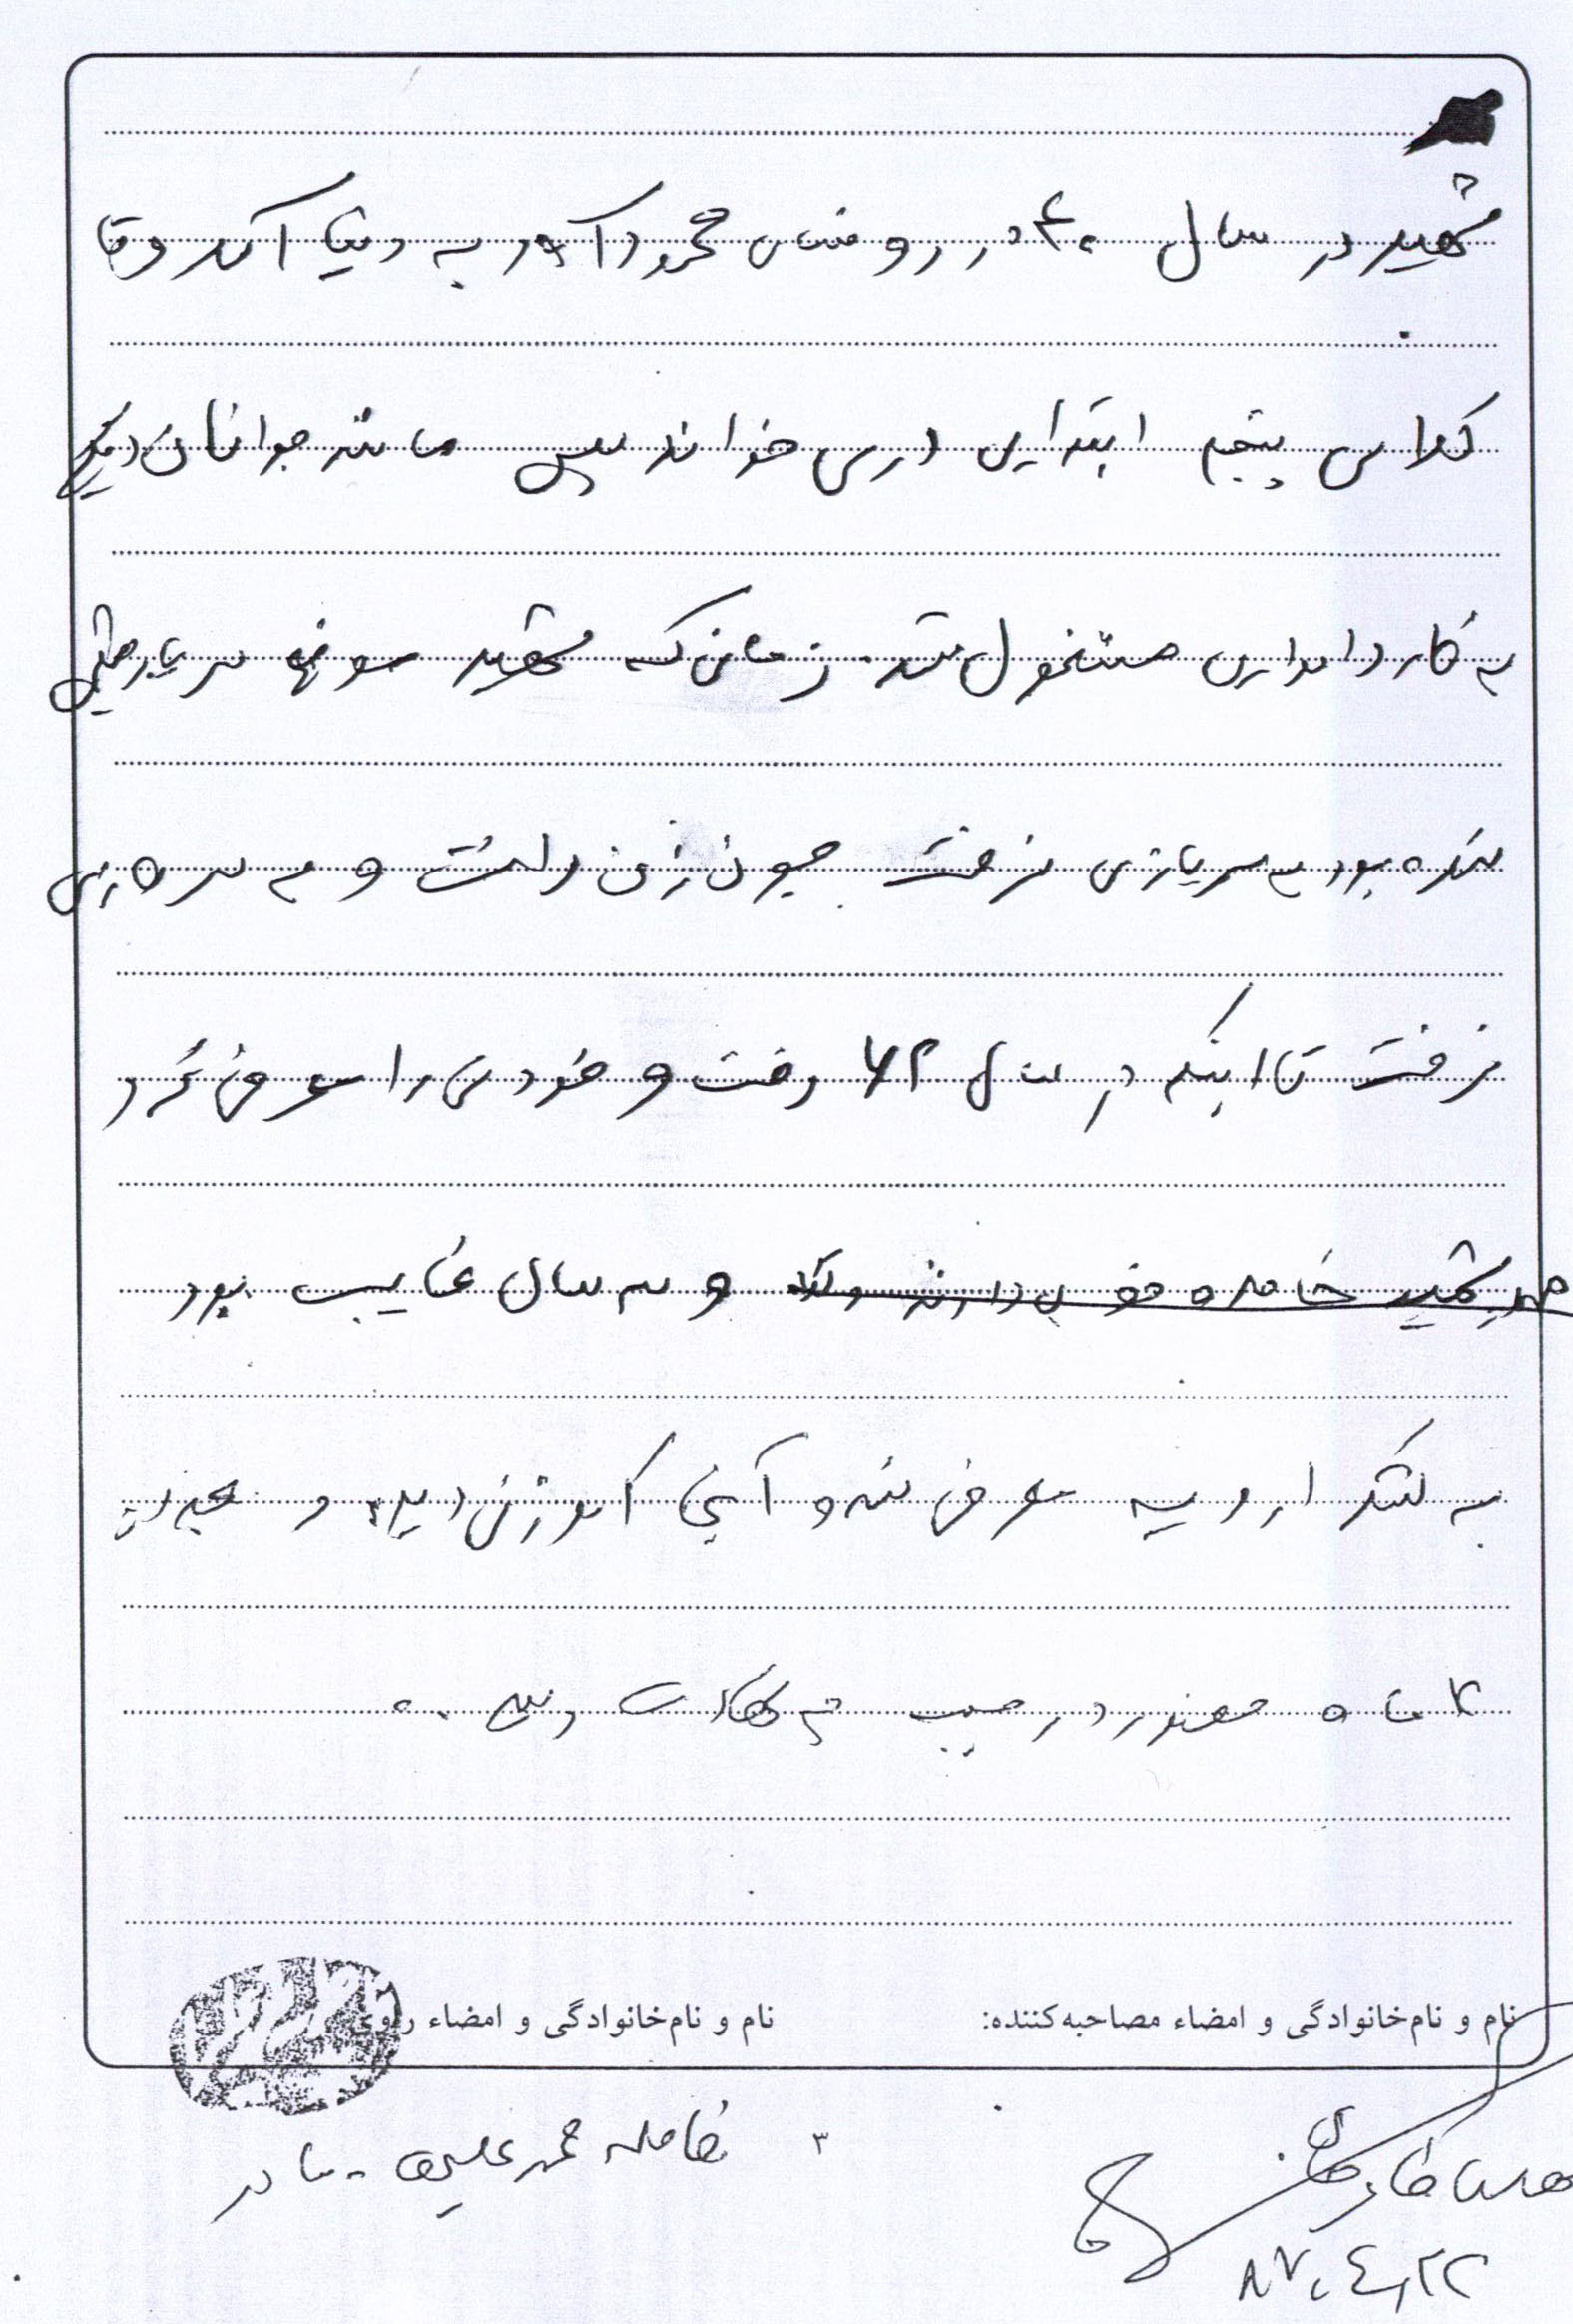 شهید در سال ۴۰ در روستای محمود آباد به دنیا آمد و تا
کلاس پنجم ابتدایی درس خواند سپس مانند جوانان دیگر
به کار دامداری مشغول شد. زمانی که شهید موقع سربازیش
شده بود به سربازی نرفت چون زن داشت و به سربازی
نرفت تا اینکه در سال ۶۲ رفت و خودش را معرفی کرد
و سه سال غایب بود
به لشکر ارومیه معرفی شد و آنجا آموزشی دید و
۲ ماه در به شهادت رسید.
نام و نام‌خانوادگی و امضاء مصاحبه‌کننده:
نام و نام‌خانوادگی و امضاء راوی
۳
مادر
۸۷،٤،۲۲